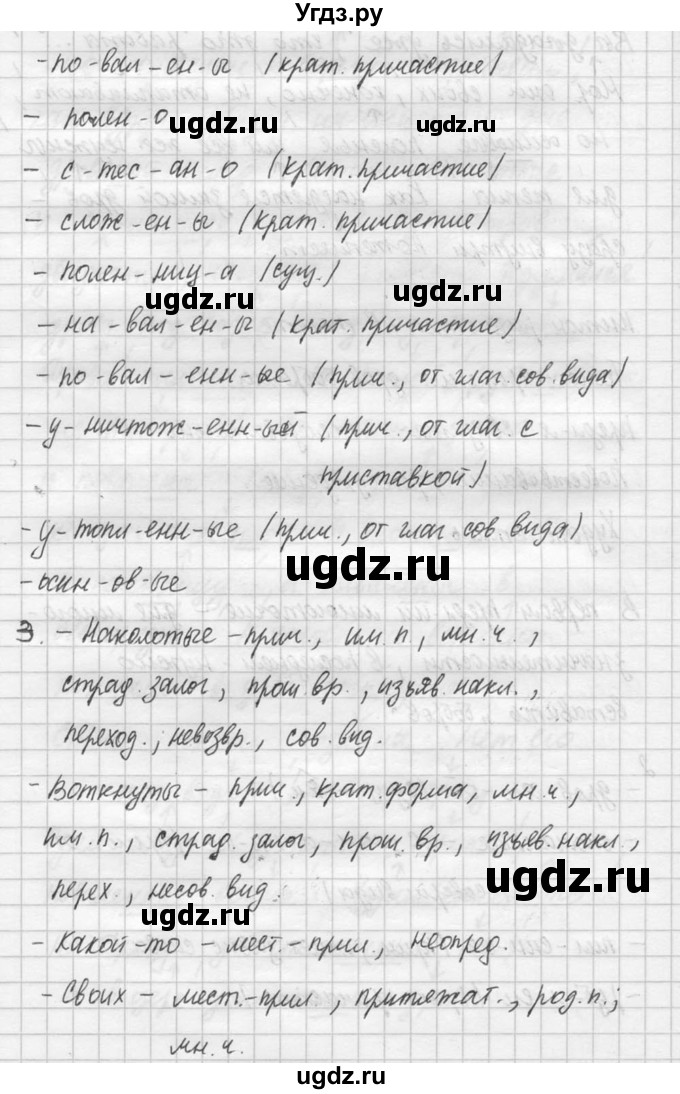 Угдз.ру
- по-вал-ен-ы (крат. причастие)
- полен-о
ugdz.ru ugdz.ru
- с-тес-ан-о (крат. причастие)
- слож-ен-ы (крат. причастие)
- полен-ниц-а (сущ.)
ugdz.ru ugdz.ru
- на-вал-ен-ы (крат. причастие)
- по-вал-енн-ые (прич., от глаг. сов. вида)
- у-ничтож-енн-ый (прич., от глаг. с
приставкой)
- у-топл-енн-ые (прич., от глаг. сов. вида)
ugdz.ru
- осин-ов-ые
3. - Наколотые - прич., им. п, мн. ч.,
страд. залог, прош. вр., изъяв. накл.,
переход., невозвр., сов. вид.
- Воткнуты - прич., крат. форма, мн. ч,
им. п., страд. залог, прош. вр., изъяв. накл.,
ugdz.ru
перех., несов. вид.
ugdz.ru
- Какой-то - мест.-прил., неопред.
- Своих - мест.-прил, притяжат., род. п.;
мн. ч.
ugdz.ru